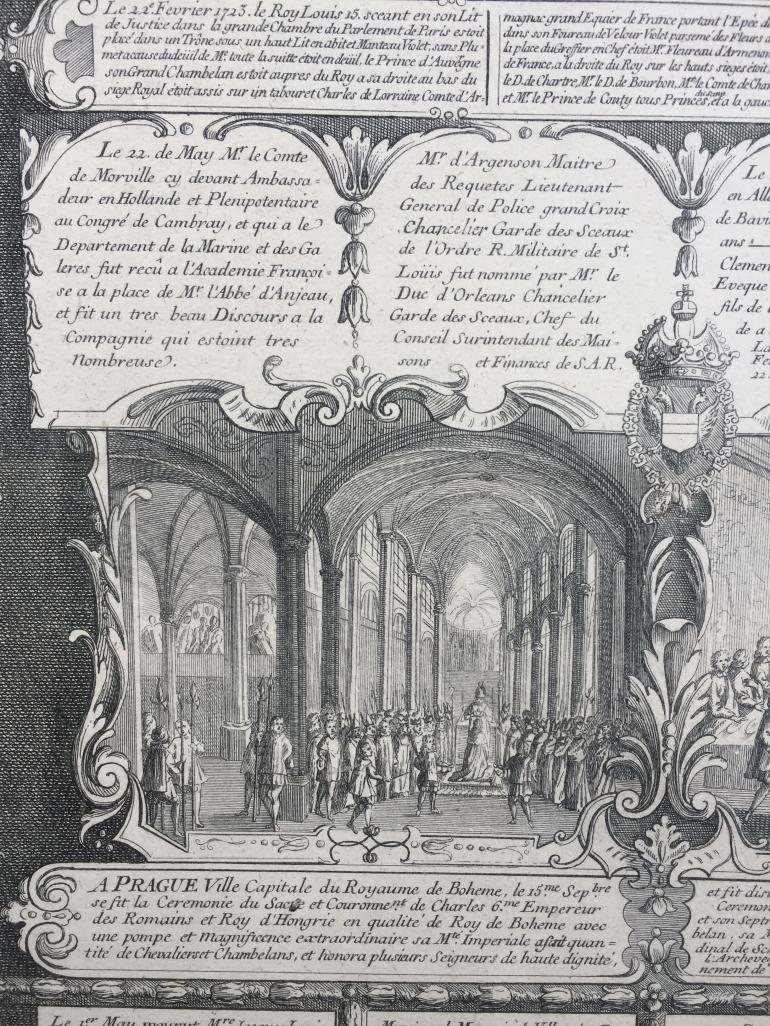 Le 22e. Fevrier 1723. le Roy Louis 15. sceant en son Lit
de Justice dans la grande Chambre du Parlement de Paris estoit
placé dans un Trône sous un haut Lit en abit et Manteau Violet, sans Plu-
met a cause du deüil de Mr. toute la suitte étoit en deüil, le Prince d'Auvêgne
son Grand Chambelan estoit aupres du Roy a sa droite au bas du
siege Royal étoit assis sur un tabouret Charles de Lorraine Comte d'Ar-
magnac grand Equier de France portant l'Epée d
dans son Foureau de Velour Violet parsemé des Fleurs d
la place du Grefier en Chef étoit Mr. Fleureau d'Armenon
de France, a la droite du Roy sur les hauts sieges étoit,
le D. de Chartre, Mr. le D. de Bourbon, Mr. le Comte de Char
et Mr. le Prince de Conty tous Princes, et a la gauc
Le 22. de May Mr. le Comte
de Morville cy devant Ambassa-
deur en Hollande et Plenipotentaire
au Congré de Cambray, et qui a le
Departement de la Marine et des Ga
leres fut recû a l'Academie Françoi-
se a la place de Mr. l'Abbé d'Anjeau,
et fit un tres beau Discours a la
Compagnie qui estoint tres
Nombreuse.
Mr. d'Argenson Maitre
des Requetes Lieutenant
General de Police grand Croix
Chancelier Garde des Sceaux
de l'Ordre R. Militaire de St.
Loüis fut nommé par Mr. le
Duc d'Orleans Chancelier
Garde des Sceaux, Chef du
Conseil Surintendant des Mai-
sons et Finances de S.A.R.
Le
en All
de Bavi
ans
Clemen
Eveque
fils de
de a
La
Fe
22.
A PRAGUE Ville Capitale du Royaume de Boheme, le 15.me Sepbre
se fit la Ceremonie du Sacre et Couronnent. de Charles 6.me Empereur
des Romains et Roy d'Hongrie en qualité de Roy de Boheme avec
une pompe et magnificence extraordinaire sa Mté. Imperiale afait quan-
tité de Chevaliers et Chambelans, et honora plusieurs Seigneurs de haute dignité,
et fit dis
Ceremon
et son Sept
belan, sa M
dinal de Sc
l'Archeve
nement de
Le 1er May mourut Mre